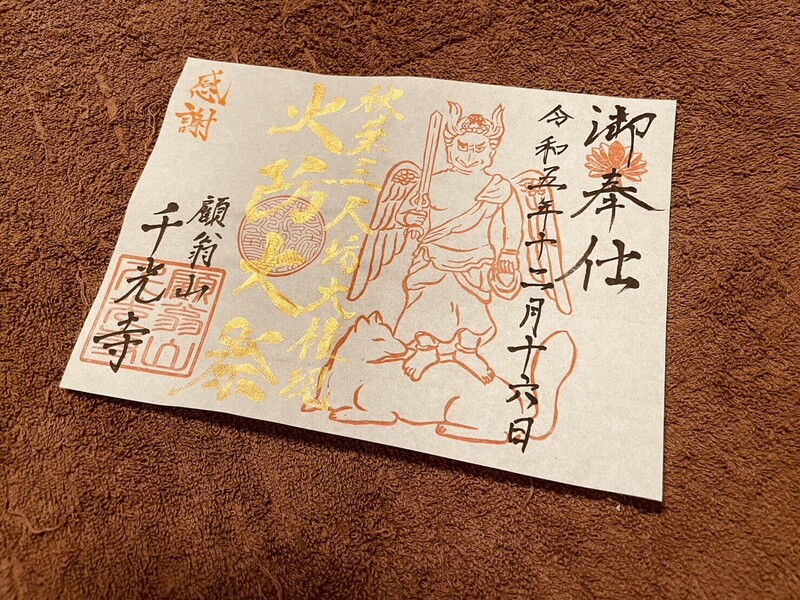 御奉仕
令和五年十二月十六日
秋葉三人坊大権現
火防大祭
感謝
顧翁山
千光寺